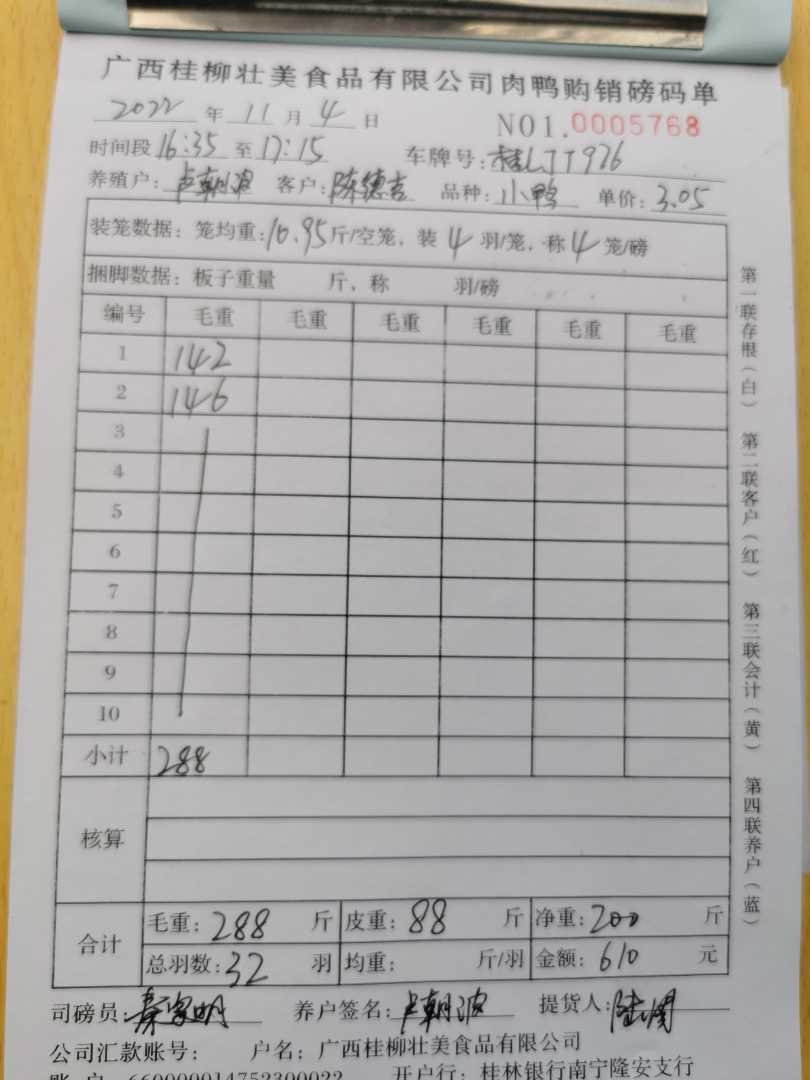 广西桂柳壮美食品有限公司肉鸭购销磅码单
2022 年 11 月 4 日 NO1.0005768
时间段 16:35 至 17:15 车牌号: 桂LJT926
养殖户: 卢朝波 客户: 陈德吉 品种: 小鸭 单价: 3.05
装笼数据: 笼均重: 10.95 斤/空笼, 装 4 羽/笼, 称 4 笼/磅
捆脚数据: 板子重量 斤, 称 羽/磅
编号 毛重 毛重 毛重 毛重 毛重 毛重
1 142
2 146
3
4
5
6
7
8
9
10
小计 288
核算
合计 毛重: 288 斤 皮重: 88 斤 净重: 200 斤
总羽数: 32 羽 均重: 斤/羽 金额: 610 元
司磅员: 秦家明 养户签名: 卢朝波 提货人:
公司汇款账号: 户名: 广西桂柳壮美食品有限公司
账 户 660000014752300022 开户行: 桂林银行南宁隆安支行
第一联存根(白) 第二联客户(红) 第三联会计(黄) 第四联养户(蓝)